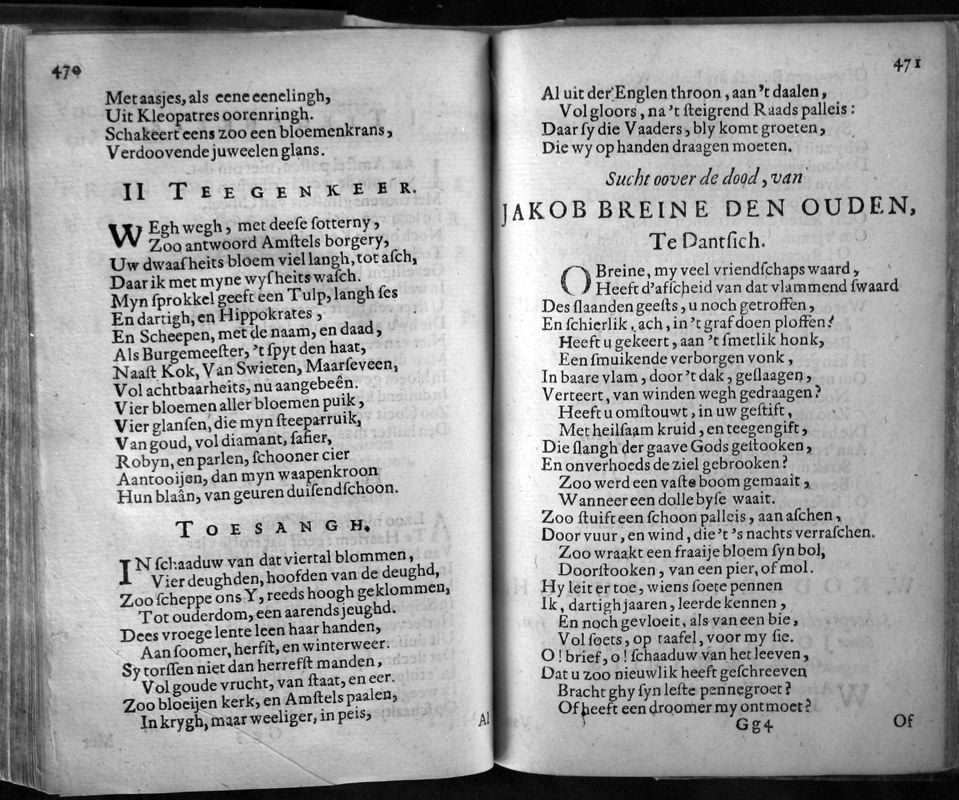 470
Met aasjes, als eene eenelingh,
Uit Kleopatres oorenringh.
Schakeert eens zoo een bloemenkrans,
Verdoovende juweelen glans.
II TEEGENKEER.
WEgh wegh, met deeſe ſotterny,
Zoo antwoord Amſtels borgery,
Uw dwaaſheits bloem viel langh, tot aſch,
Daar ik met myne wyſheits waſch.
Myn ſprokkel geeft een Tulp, langh ſes
En dartigh, en Hippokrates,
En Scheepen, met de naam, en daad,
Als Burgemeeſter, 't ſpyt den haat,
Naaſt Kok, Van Swieten, Maarſeveen,
Vol achtbaarheits, nu aangebeên.
Vier bloemen aller bloemen puik,
Vier glanſen, die myn ſteeparruik,
Van goud, vol diamant, ſafier,
Robyn, en parlen, ſchooner cier
Aantooijen, dan myn waapenkroon
Hun blaân, van geuren duiſendſchoon.
TOESANGH.
IN ſchaaduw van dat viertal blommen,
Vier deughden, hoofden van de deughd,
Zoo ſcheppe ons Y, reeds hoogh geklommen,
Tot ouderdom, een aarends jeughd.
Dees vroege lente leen haar handen,
Aan ſoomer, herfſt, en winterweer.
Sy torſſen niet dan herreſt manden,
Vol goude vrucht, van ſtaat, en eer.
Zoo bloeijen kerk, en Amſtels paalen,
In krygh, maar weeliger, in peis,
Al
471
Al uit der Englen throon, aan 't daalen,
Vol gloors, na 't ſteigrend Raads palleis:
Daar ſy die Vaaders, bly komt groeten,
Die wy op handen draagen moeten.
Sucht oover de dood, van
JAKOB BREINE DEN OUDEN,
Te Dantſich.
O Breine, my veel vriendſchaps waard,
Heeft d'afſcheid van dat vlammend ſwaard
Des ſlaanden geeſts, u noch getroffen,
En ſchierlik, ach, in 't graf doen ploffen!
Heeft u gekeert, aan 't ſmetlik honk,
Een ſmuikende verborgen vonk,
In baare vlam, door 't dak, geſlaagen,
Verteert, van winden wegh gedraagen?
Heeft u omſtouwt, in uw geſtift,
Met heilſaam kruid, en teegengift,
Die ſlangh der gaave Gods geſtooken,
En onverhoeds de ziel gebrooken?
Zoo werd een vaſte boom gemaait,
Wanneer een dolle byſe waait.
Zoo ſtuift een ſchoon palleis, aan aſchen,
Door vuur, en wind, die 't 's nachts verraſchen.
Zoo wraakt een fraaije bloem ſyn bol,
Doorſtooken, van een pier, of mol.
Hy leit er toe, wiens ſoete pennen
Ik, dartigh jaaren, leerde kennen,
En noch gevloeit, als van een bie,
Vol ſoets, op taafel, voor my ſie.
O! brief, o! ſchaaduw van het leeven,
Dat u zoo nieuwlik heeft geſchreeven
Bracht ghy ſyn leſte pennegroet?
Of heeft een droomer my ontmoet?
Gg4
Of